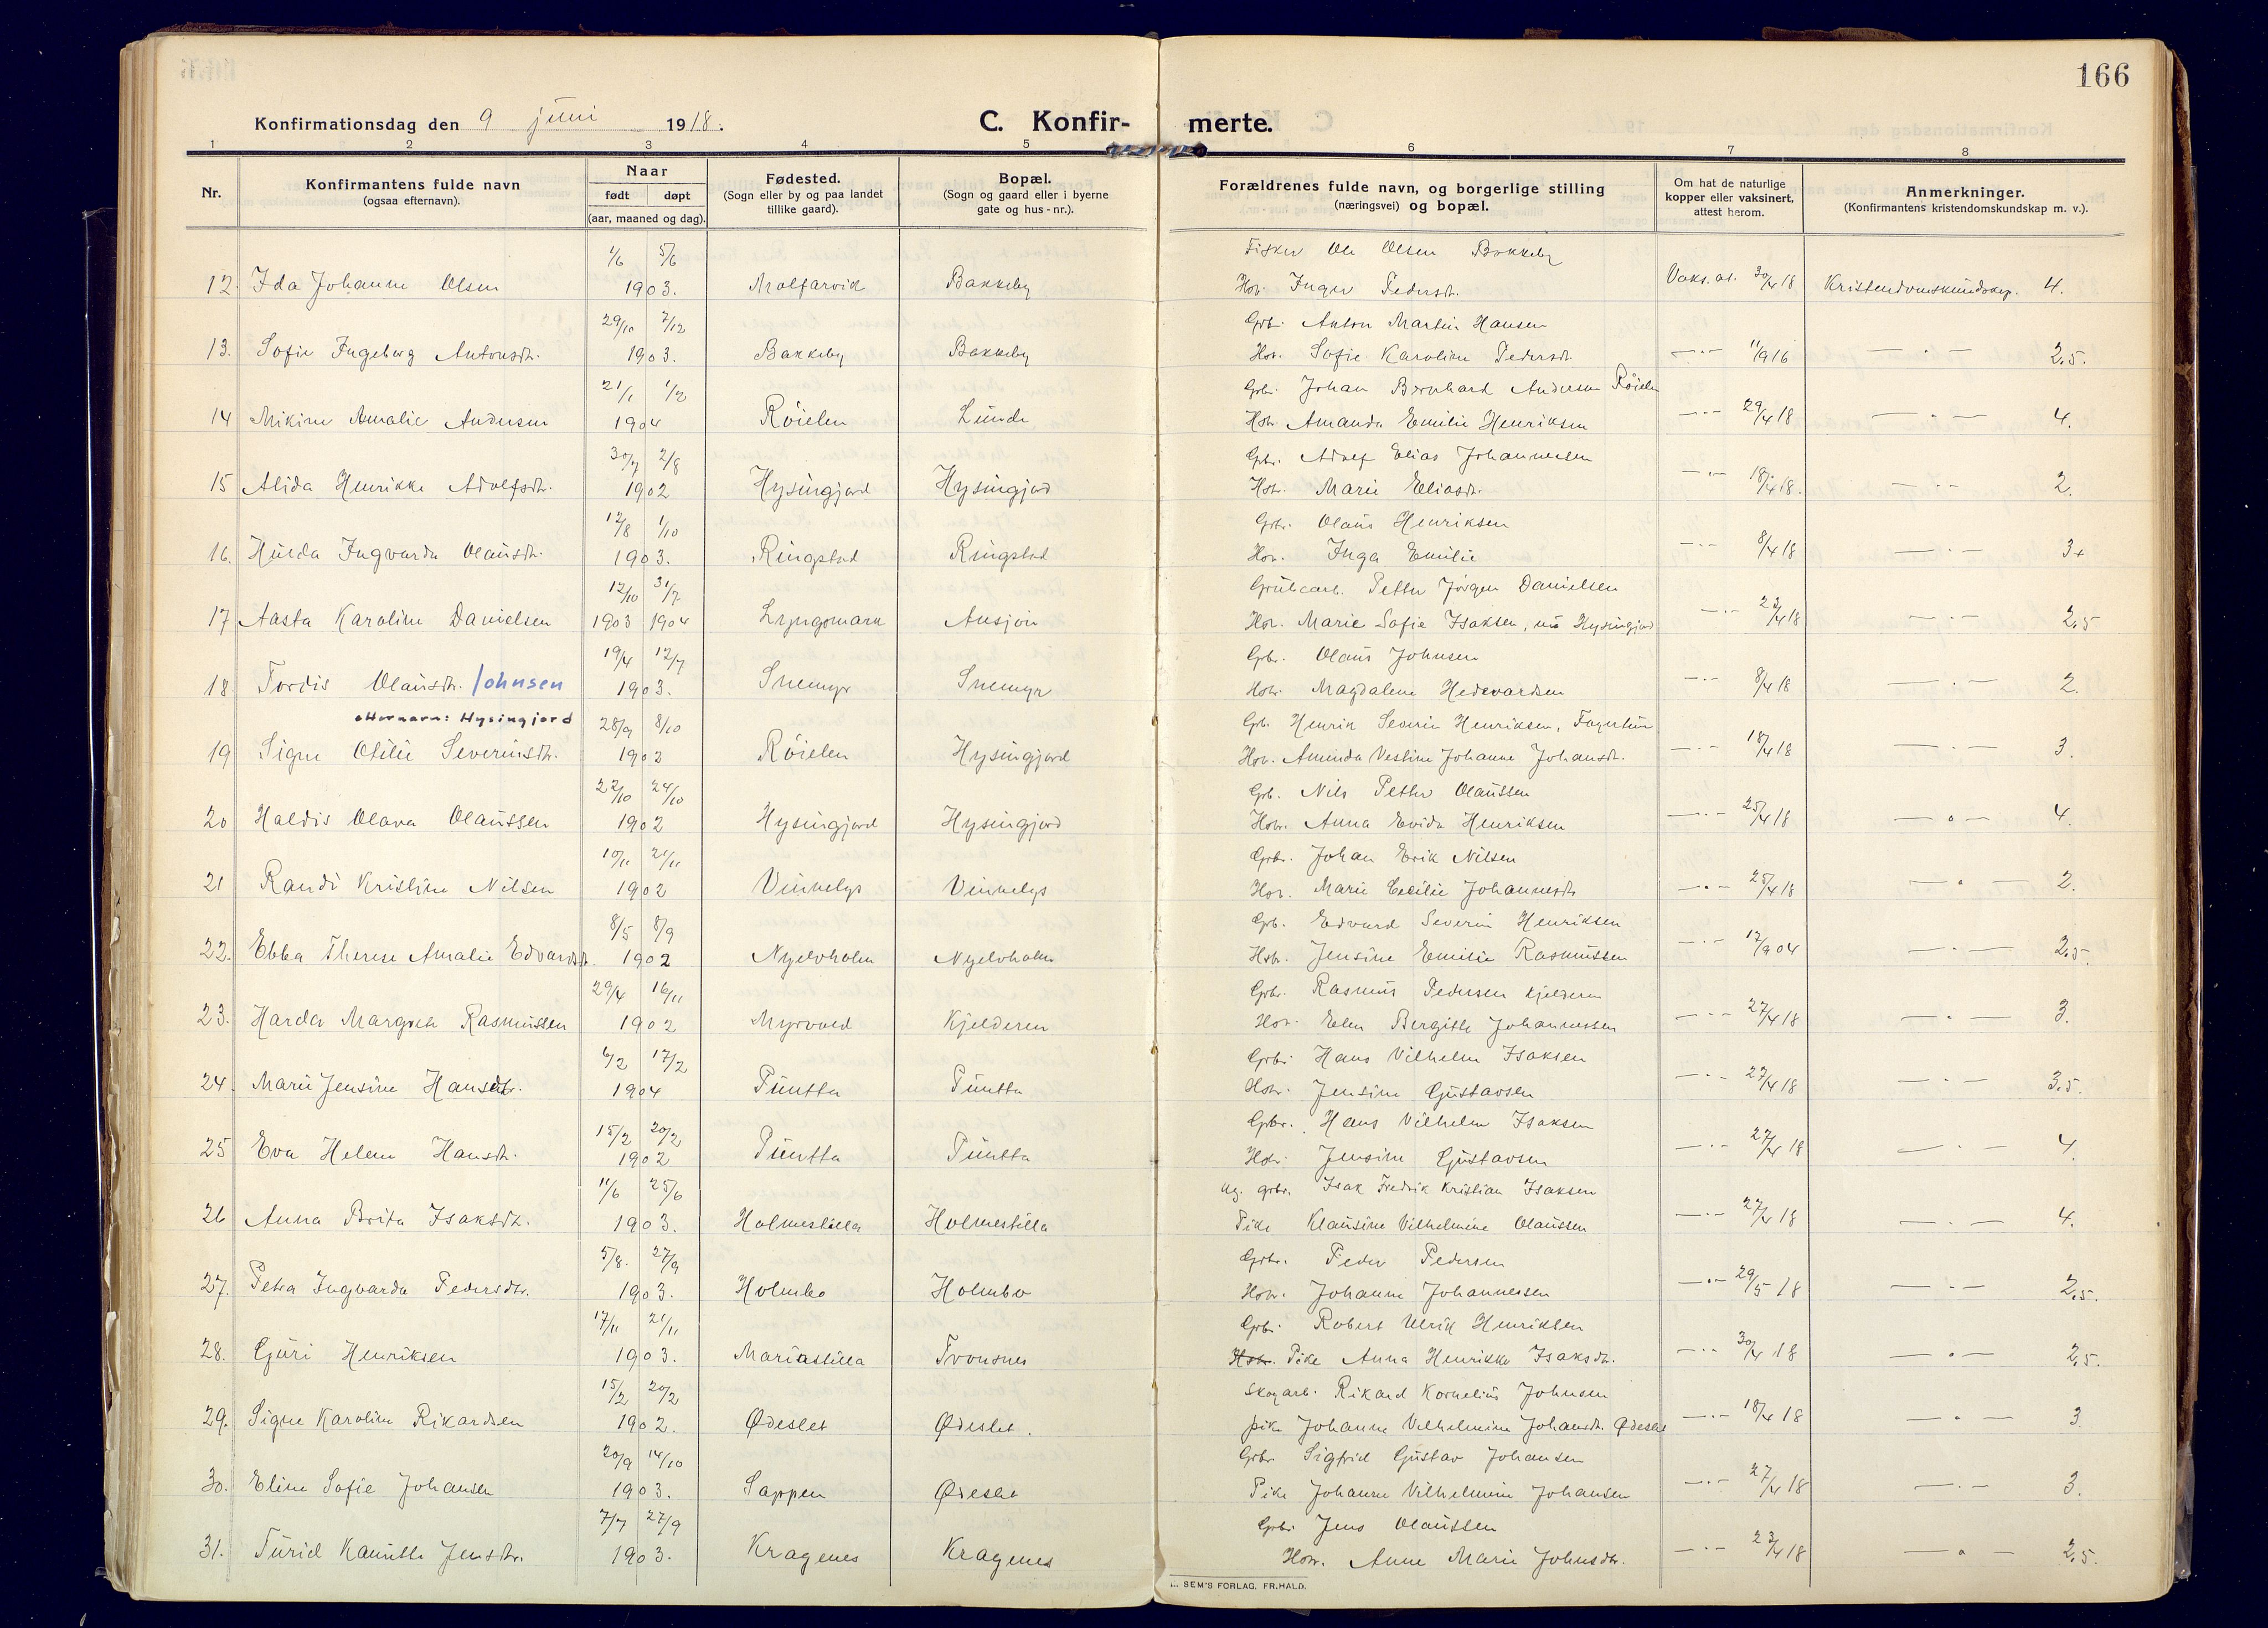 166
Konfirmationsdag den 9 juni 1918.
C. Konfir- merte.
1 2 3 4 5 6 7 8
Nr.
Konfirmantens fulde navn
(ogsaa efternavn).
Naar
født døpt
(aar, maaned og dag).
Fødested.
(Sogn eller by og paa landet
tillike gaard).
Bopæl.
(Sogn og gaard eller i byerne
gate og hus-nr.).
Forældrenes fulde navn, og borgerlige stilling
(næringsvei) og bopæl.
Om hat de naturlige
kopper eller vaksinert,
attest herom.
Anmerkninger.
(Konfirmantens kristendomskundskap m. v.).
1/6 5/6 Fisker Ole Olsen Bakkeby
12. Ida Johanne Olsen 1903. Bakkeby Hor. Inger Pedersdt. Vaks. at. 30/4 18 Kristendomskundskap. 4.
29/10 7/12 Grbr. Anton Martin Hansen
13. Sofie Ingeborg Antonsdt. 1903. Bakkeby Bakkeby Hor. Sofie Karoline Pedersdt. —·— 11/9 16 —·— 2,5.
21/1 1/2 Grbr. Johan Bernhard Andersen Röielen
14 Mikine Amalie Andersen 1904 Röielen Lunde Hstr. Amanda Emilie Henriksen —·— 29/4 18 —·— 4.
30/7 2/8 Grbr. Adolf Elias Johannesen
15 Alida Henrikke Adolfsdt. 1902 Hysingjord Hysingjord Hstr. Marie Eliasdt. —·— 18/4 18. —·— 2.
12/8 1/10 Grbr. Olaus Henriksen
16. Hulda Ingvarda Olausdt. 1903. Ringstad Ringstad Hor. Inga Emilie —·— 8/4 18 —·— 3+
12/10 31/7 Grubearb. Petter Jörgen Danielsen
17 Aasta Karoline Danielsen 1903 1904 Lyngsmark Ansjön Hor. Marie Sofie Isaksen, nu Hysingjord —·— 23/4 18 —·— 2,5
19/4 12/7 Grbr. Olaus Johnsen
18 Tordis Olausdt. Johnsen 1903. Snemyr Snemyr Hstr. Magdalene Hedevardsen —·— 8/4 18 —·— 2.
etternavn: Hysingjord 28/9 8/10 Grb. Henrik Severin Henriksen, Fagertun
19 Signe Otilie Severinsdt. 1903 Röielen Hysingjord Hor. Aminda Vestine Johanne Johansdt. —·— 18/4 18 —·— 3.
22/10 24/10 Grb. Nils Petter Olaussen
20 Haldis Olava Olaussen 1902 Hysingjord Hysingjord Hstr. Anna Evida Henriksen —·— 25/4 18 —·— 4.
10/11 21/11 Grbr. Johan Erik Nilsen
21 Randi Kristine Nilsen 1902 Vinkelys Vinkelys Hor. Marie Cecilie Johannesdt. —·— 25/4 18 —·— 2.
8/5 8/9 Grb. Edvard Severin Henriksen
22. Ebba Therese Amalie Edvardsdt. 1902 Nyelvholm Nyelvholm Hstr. Jensine Emilie Rasmussen —·— 12/9 04 —·— 2,5.
29/4 16/11 Grbr. Rasmus Pedersen Kjelderen
23. Harda Margrete Rasmussen 1902 Myrvold Kjelderen Hor. Elen Bergitte Johannessen —·— 27/4 18 —·— 3.
6/2 17/2 Grbr. Hans Vilhelm Isaksen
24. Marie Jensine Hansdtr. 1904 Puntta Puntta Hstr. Jensine Gustavsen —·— 27/4 18 —·— 3,5.
15/2 20/2 Grbr. Hans Vilhelm Isaksen
25 Eva Helene Hansdt. 1902 Puntta Puntta Hstr. Jensine Gustavsen —·— 27/4 18 —·— 4.
11/6 25/6 Ug. grbr. Isak Fredrik Kristian Isaksen
26 Anna Brita Isaksdt. 1903. Holmestilla Holmestilla Pike Klausine Vilhelmine Olaussen —·— 27/4 18 —·— 4.
5/8. 27/9 Grbr. Peder Pedersen
27. Petra Ingvarda Pedersdtr. 1903. Holmbo Holmbo Hstr. Johanne Johannesen —·— 29/5 18 —·— 2,5.
17/11 21/11 Grbr. Robert Ulrik Henriksen
28. Guri Henriksen 1903. Mariastilla Tronsnes Hstr. Pike Anna Henrikke Isaksdt. —·— 30/4 18 —·— 2,5.
15/2 20/2 Skogarb. Rikard Kornelius Johnsen
29. Signe Karoline Rikardsen 1902. Ødeslet Ødeslet. pike Johanne Vilhelmine Johansdt. Ødeslet —·— 18/4 18 —·— 3.
20/9 14/10 Grbr Sigfrid Gustav Johansen
30. Eline Sofie Johansen 1903. Sappen Ødeslet Pike Johanne Vilhelmine Johansen —·— 27/4 18 —·— 3.
7/7 27/9 Grbr. Jens Olaussen
31. Turid Kamilla Jensdtr. 1903. Kragenes Kragenes Hstr. Anne Marie Johnsdtr. —·— 23/4 18 —·— 2,5.
SEM'S FORLAG, FR.HALD.